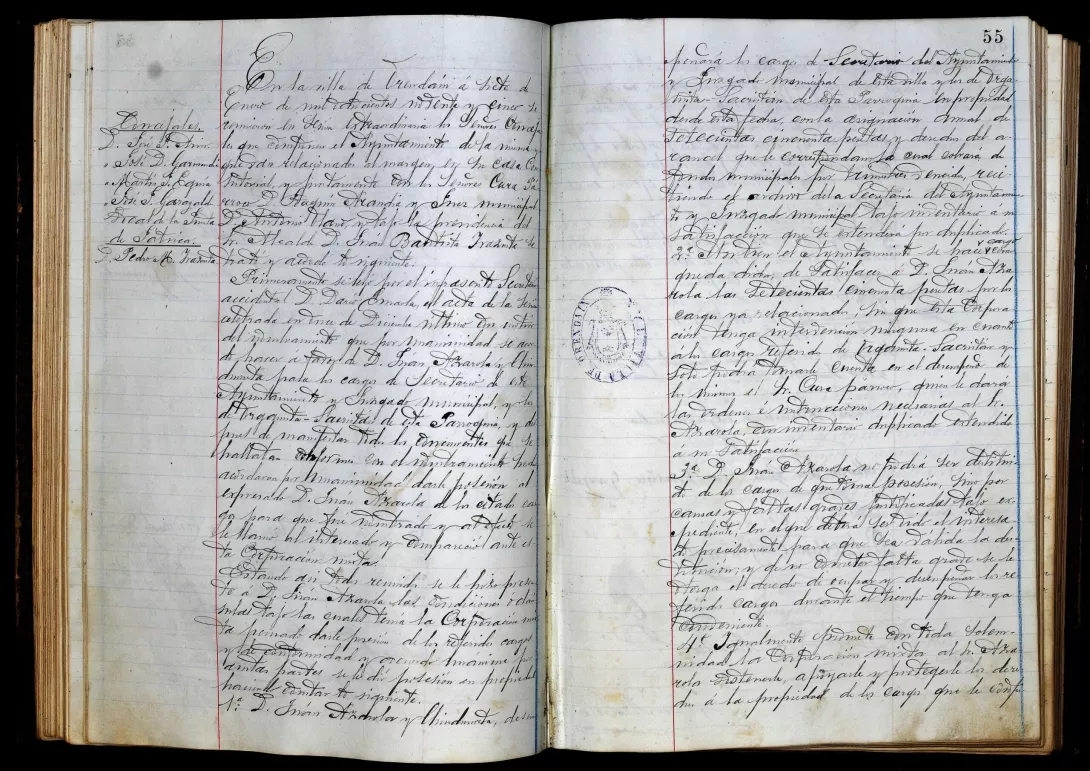 En la villa de Orendain á siete de
Enero de mil ochocientos noventa y cinco se
reunieron en sesión extraordinaria los Señores Conceja-
les que componen el Ayuntamiento de la misma y
que van relacionados al margen, en su casa Con-
sistorial, y juntamente con los Señores Cura Pá-
rroco D. Joaquin Arandia y Juez municipal
D. Antonio y bajo la presidencia del
Sr. Alcalde D. Juan Bautista Irazusta se
trató y acordó lo siguiente.
Concejales.
D. José
" José D. Garmendia
" Martin J. Eguia
" José J. Garagalza
Vocal de la Junta
de Patrica.
D. Pedro M. Irazusta
Primeramente se leyó por el infrascrito Secretario
accidental D. acta de la sesión
celebrada en once de Diciembre último con motivo
del nombramiento que por unanimidad se acor-
dó hacer á favor de D. Juan Azarola y Chin-
churreta para los cargos de Secretario de este
Ayuntamiento y Juzgado municipal, y los
de Organista-Sacristan de esta Parroquia, y des-
pues de manifestar todos los concurrentes que se
hallaban conformes con el nombramiento hecho
acordaron por unanimidad darle posesión al
expresado D. Juan Azarola de los citados car-
gos para que fué nombrado y al efecto se
le llamó al interesado y compareció ante es-
ta Corporación mixta.
Estando así todos reunidos se le hizo presen-
te á D. Juan Azarola las condiciones ó cláu-
sulas bajo las cuales tenía la Corporación mix-
ta pensado darle posesión de los referidos cargos
y de conformidad y acuerdo unánime por
ambas partes se le dió posesión en propiedad
haciendo constar lo siguiente.
1ª D. Juan Azarola y Chinchurreta, desem-
55
peñará los cargos de Secretario del Ayuntamiento
y Juzgado municipal de esta villa y los de Orga-
nista-Sacristán de esta Parroquia en propiedad
desde esta fecha, con la asignación anual de
setecientas cincuenta pesetas y derechos del a-
rancel que le correspondan, la cual cobrará de
fondos municipales por trimestres vencidos, reci-
biendo el archivo de la Secretaría del Ayuntamien-
to y Juzgado municipal bajo inventario á su
satisfacción que se extenderá por duplicado.
2ª Si bien el Ayuntamiento se hace cargo como
queda dicho, de satisfacer á D. Juan Aza-
rola las setecientas cincuenta pesetas por los
cargos ya relacionados, sin que esta Corpora-
ción tenga intervención ninguna en cuanto
á los cargos referidos de Organista-Sacristán y
solo podrá tomarle cuenta en el desempeño de
los mismos el Sr. Cura párroco, quien le dará
las órdenes é instrucciones necesarias al Sr.
Azarola, con inventario duplicado extendido
á su satisfacción
3ª D. Juan Azarola no podrá ser destitui-
do de los cargos de que toma posesión, sino por
causas y faltas graves justificadas bajo ex-
pediente, en el que deberá ser oido el interesa-
do precisamente para que sea válida la des-
titución, y de no cometer falta grave se le
otorga el derecho de ocupar y desempeñar los re-
feridos cargos durante el tiempo que tenga
conveniente.
4ª Igualmente promete con toda solem-
nidad la Corporación mixta al Sr. Aza-
rola sostenerle, apoyarle y protegerle los dere-
chos á la propiedad de los cargos que le confie-
VILLA DE ORENDAIN